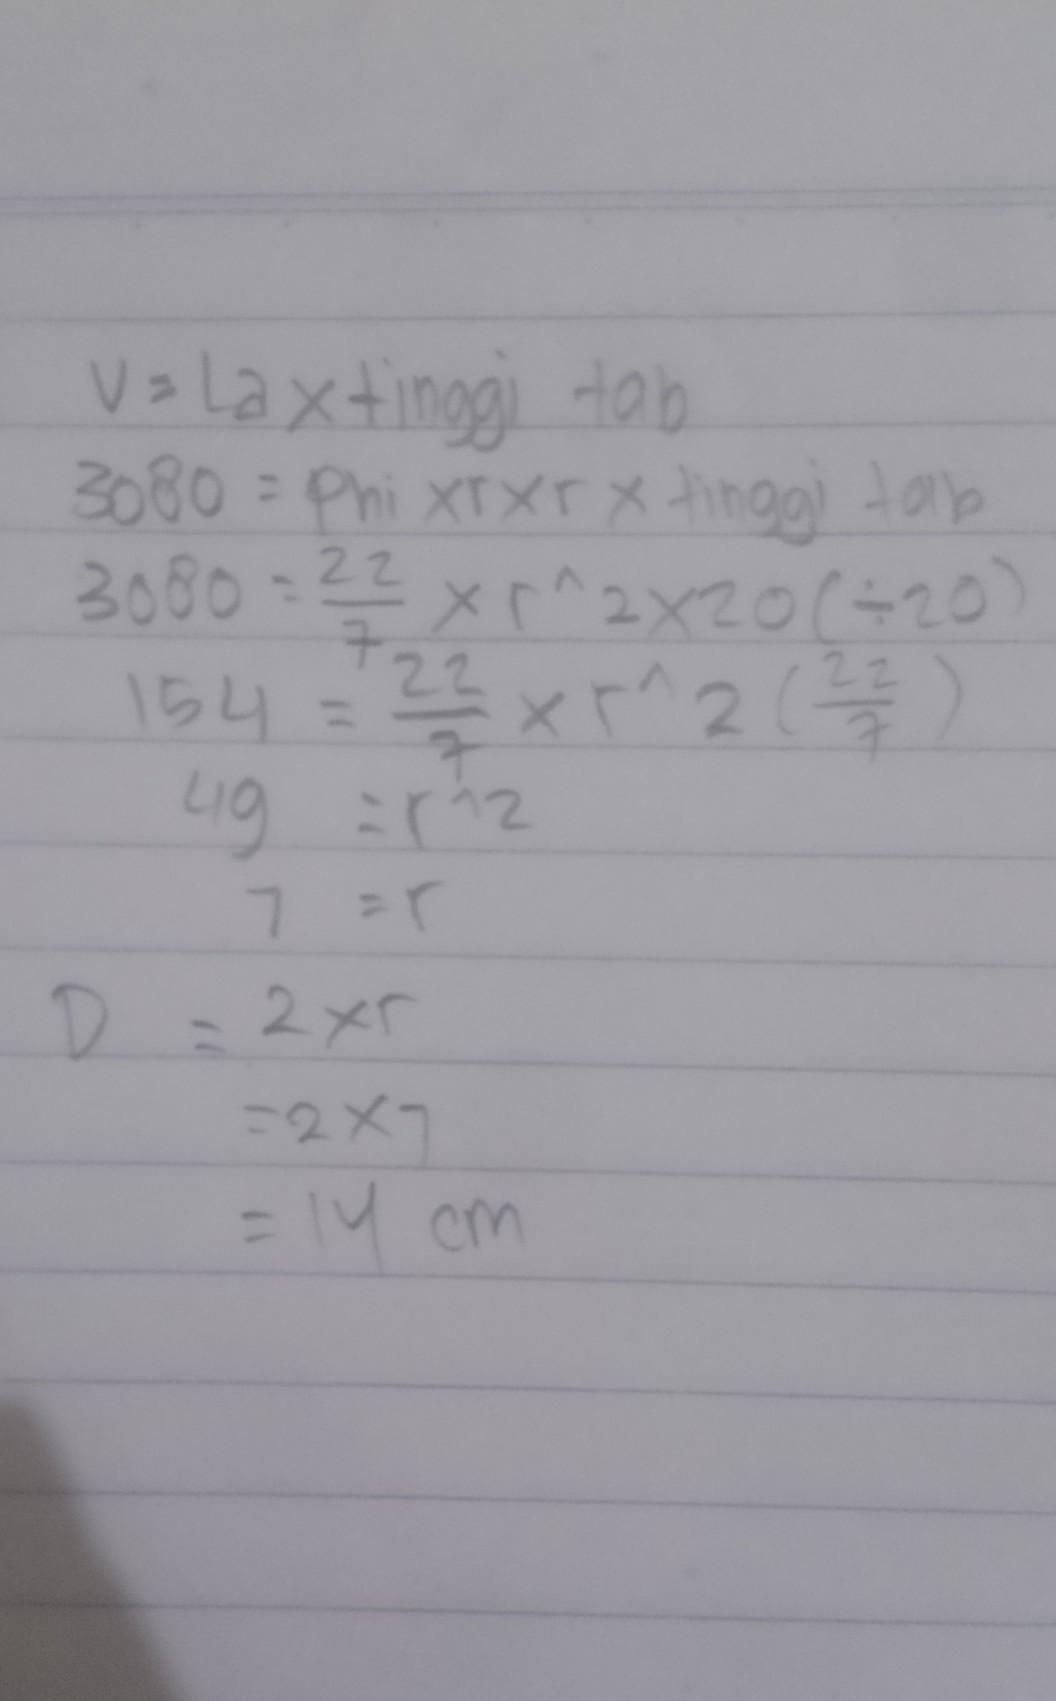 V = La x tinggi tab
3080 = Phi x r x r x tinggi tab
3080 = 22/7 x r^2 x 20 (÷20)
154 = 22/7 x r^2 (22/7)
49 = r^2
7 = r
D = 2 x r
= 2 x 7
= 14 cm